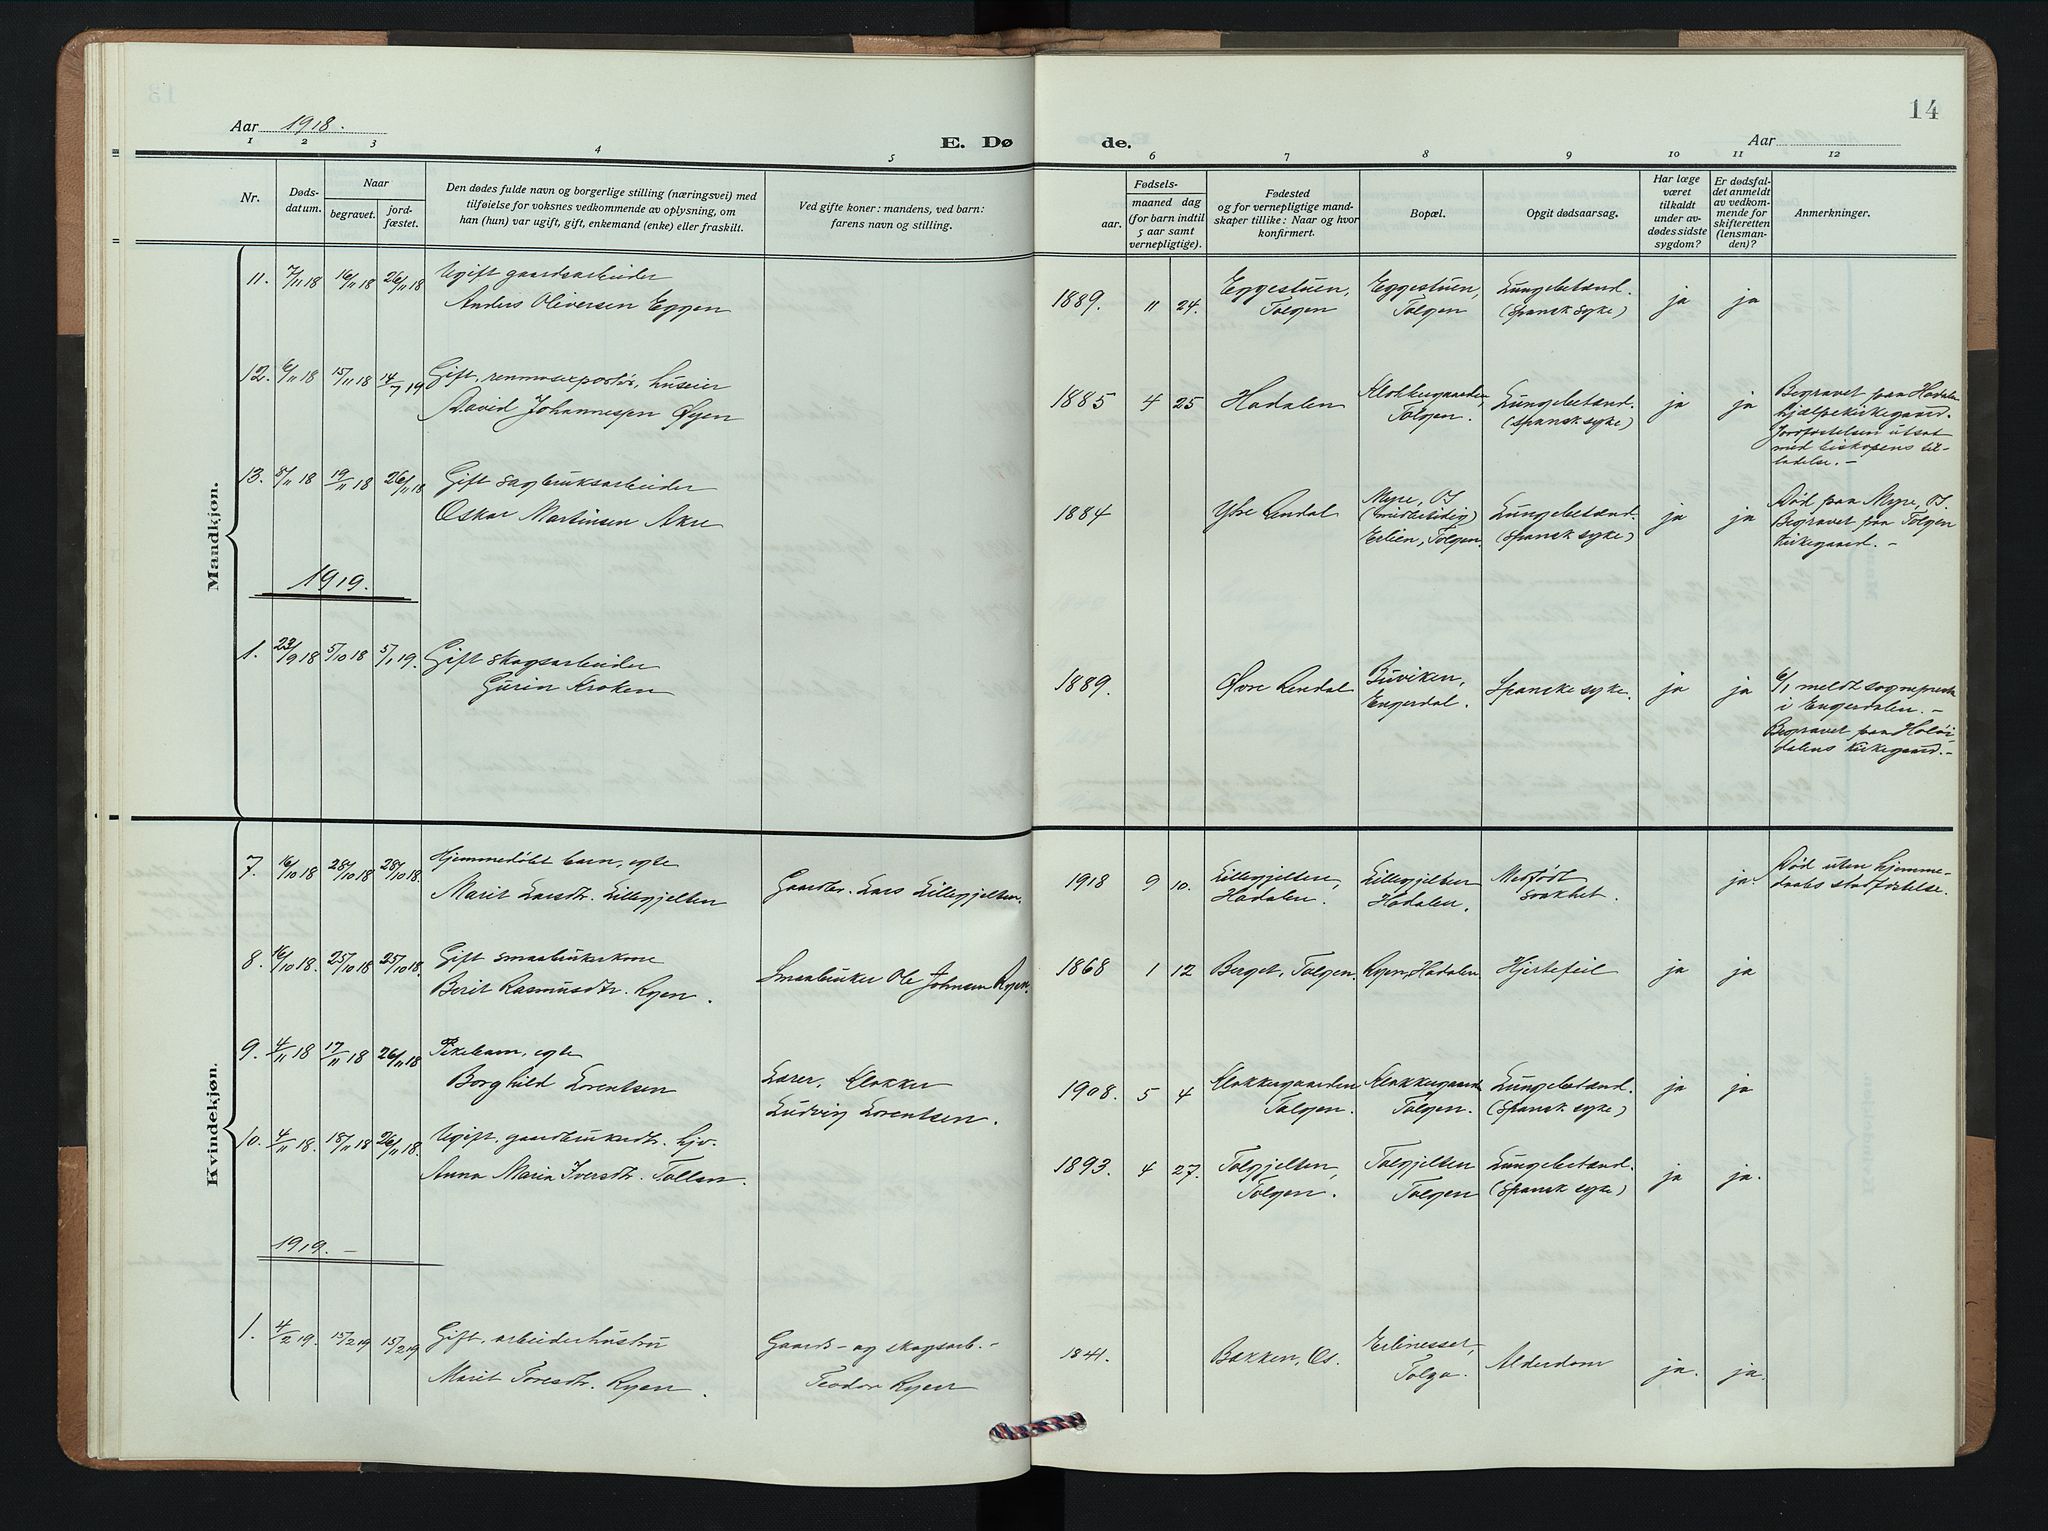 14
Aar 1918.
E. Dø
de.
Aar
1 2 3 4 5 6 7 8 9 10 11 12
Nr.
Døds-
datum.
Naar
begravet.
jord-
fæstet.
Den dødes fulde navn og borgerlige stilling (næringsvei) med
tilføielse for voksnes vedkommende av oplysning, om
han (hun) var ugift, gift, enkemand (enke) eller fraskilt.
Ved gifte koner: mandens, ved barn:
farens navn og stilling.
Fødsels-
aar.
maaned dag
(for barn indtil
5 aar samt
vernepligtige).
Fødested
og for vernepligtige mand-
skaper tillike: Naar og hvor
konfirmert.
Bopæl.
Opgit dødsaarsag.
Har læge
været
tilkaldt
under av-
dødes sidste
sygdom?
Er dødsfal-
det anmeldt
av vedkom-
mende for
skifteretten
(lensman-
den)?
Anmerkninger.
Mandkjøn.
11. 7/11 18 16/11 18 26/11 18 Ugift gaardsarbeider
Anders Oliversen Eggen
1889. 11 24. Eggestuen, Tolgen Eggestuen, Tolgen Lungebetænd. (Spansk syke) ja ja
12. 6/11 18 15/11 18 14/7 19 Gift, renmoseexportør, huseier
David Johannessen Øyen
1885 4 25 Hodalen Klokkergaarden, Tolgen. Lungebetænd. (spansk syke) ja ja
Begravet paa Hodalen
hjælpekirkegaard.
Jordfæstelsen utsat
med biskopens til-
ladelse. -
13. 8/11 18 19/11 18 26/11 18 Gift sagbruksarbeider
Oskar Martinsen Akre
1884 Ytre Rendal Myre, Os (midlertidig) Erlien, Tolgen. Lungebetænd. (Spansk syke) ja ja
Død paa Myre, Os.
Begravet paa Tolgen
kirkegaard. -
1919.
1. 23/9 18 5/10 18 5/1 19. Gift skogsarbeider
Gurin Kroken
1889. Øvre Rendal Buviken, Engerdal. Spanske syke. ja ja
6/1 meldt sogneprest
i Engerdalen. -
Begravet paa Holøi-
dalens kirkegaard. -
Kvindekjøn.
7. 16/10 18 28/10 18 28/10 18 Hjemmedøbt barn, egte
Marit Larsdtr. Lillegjelten
Gaardbr. Lars Lillegjelten.
1918 9 10. Lillegjelten, Hodalen. Lillegjelten Hodalen. Medfødt svakhet. ja.
Død uten hjemme-
daabs stadfæstelse.
8. 16/10 18. 25/10 18 25/10 18. Gift smaabrukerkone
Berit Rasmusdtr. Ryen.
Smaabruker Ole Johnsen Ryen.
1868 1 12 Berget, Tolgen. Ryen, Hodalen Hjertefeil ja ja
9. 4/11 18 17/11 18 26/11 18 Pikebarn, egte
Borghild Lorentsen
Lærer, Klokker
Ludvig Lorentsen.
1908. 5 4 Klokkergaarden Tolgen. Klokkergaard Tolgen. Lungebetænd. (Spansk syke) ja ja
10. 4/11 18. 18/11 18 26/11 18. Ugift, gaardbrukerdtr. hjv.
Anna Maria Iversdtr. Tollan.
1893. 4 27. Tolgjelten, Tolgen. Tolgjelten Tolgen Lungebetænd. (Spansk syke) ja ja.
1919. -
1. 4/2 19. 15/2 19 15/2 19 Gift, arbeiderhustru
Marit Toresdtr. Ryen.
Gaards- og skogsarb. -
Teodor Ryen
1841. Bakken, Os. Erlinesset, Tolga. Alderdom ja. ja.